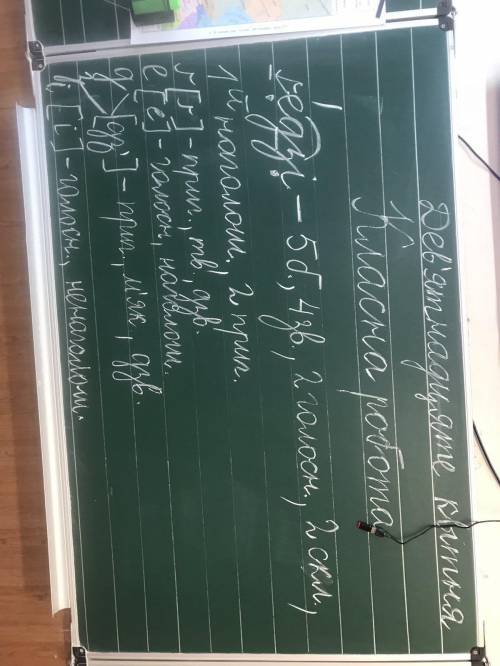 Дев'ятнадцяте квітня
Класна робота
ґедзі – 5б, 4зв, 2 голосн., 2 скл.,
1й наголош, 2 приг.
ґ [ґ] – приг., тв, дзв.
е [е] – голосн, наголош.
д з [дз'] – приг., м'як, дзв.
і [і] – голосн, ненаголош.